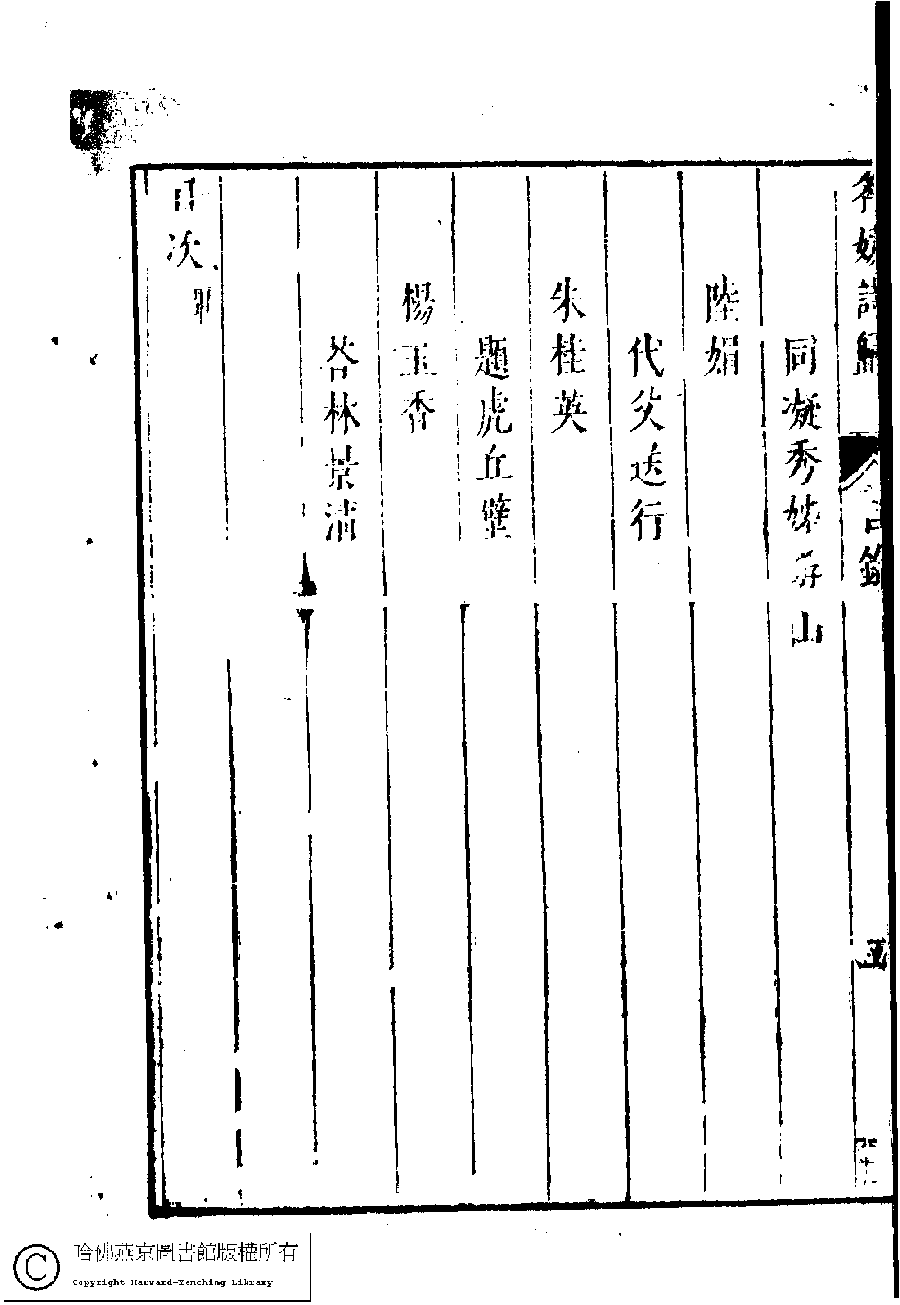 同凝秀姊尋山
陸娟
代父送行
朱桂英
題虎丘壁
楊玉香
答林景清
目次
哈佛燕京圖書館版權所有
Copyright Harvard-Yenching Library